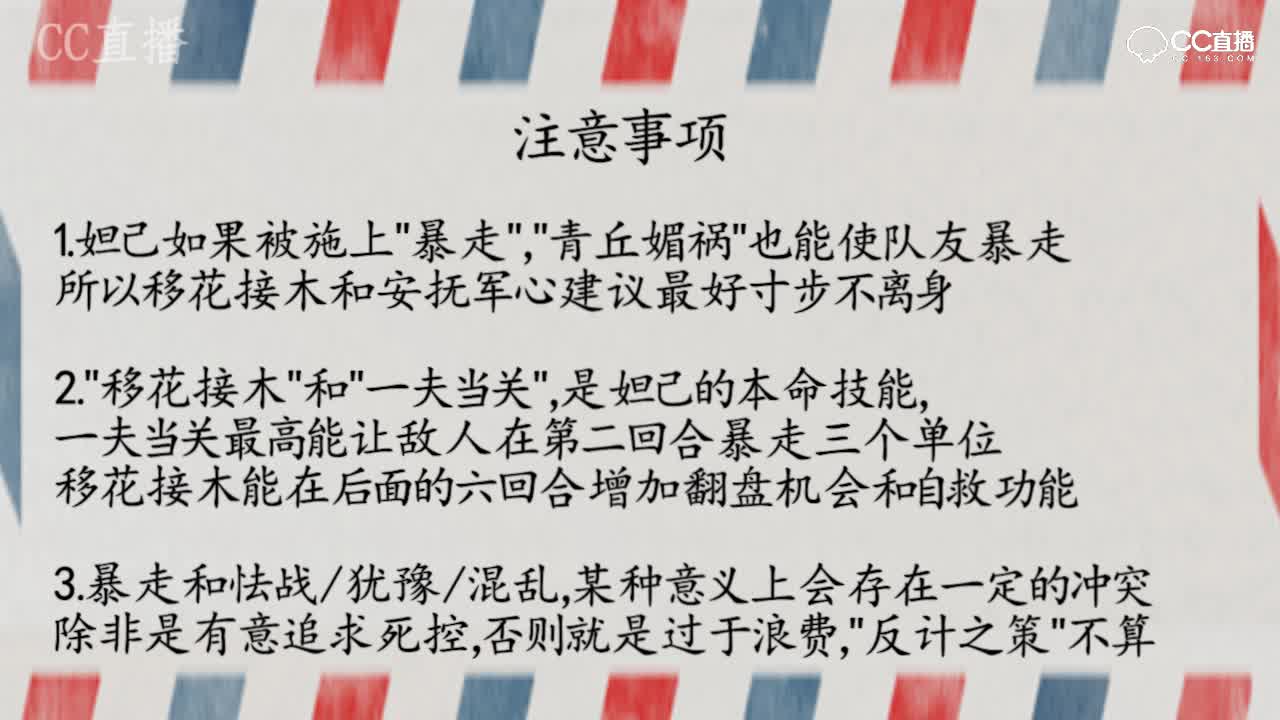 CC直播
CC直播
CC.163.COM
注意事项
1.妲己如果被施上"暴走","青丘媚祸"也能使队友暴走
所以移花接木和安抚军心建议最好寸步不离身
2."移花接木"和"一夫当关",是妲己的本命技能,
一夫当关最高能让敌人在第二回合暴走三个单位
移花接木能在后面的六回合增加翻盘机会和自救功能
3.暴走和怯战/犹豫/混乱,某种意义上会存在一定的冲突
除非是有意追求死控,否则就是过于浪费,"反计之策"不算